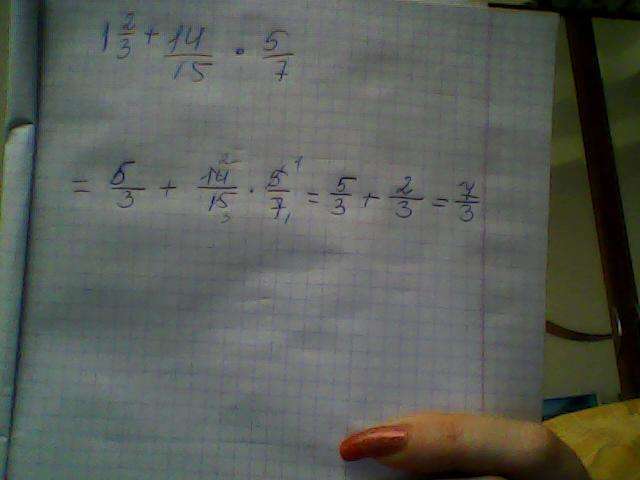 1 2/3 + 14/15 · 5/7
= 5/3 + 14²/15₃ · 5¹/7₁ = 5/3 + 2/3 = 7/3